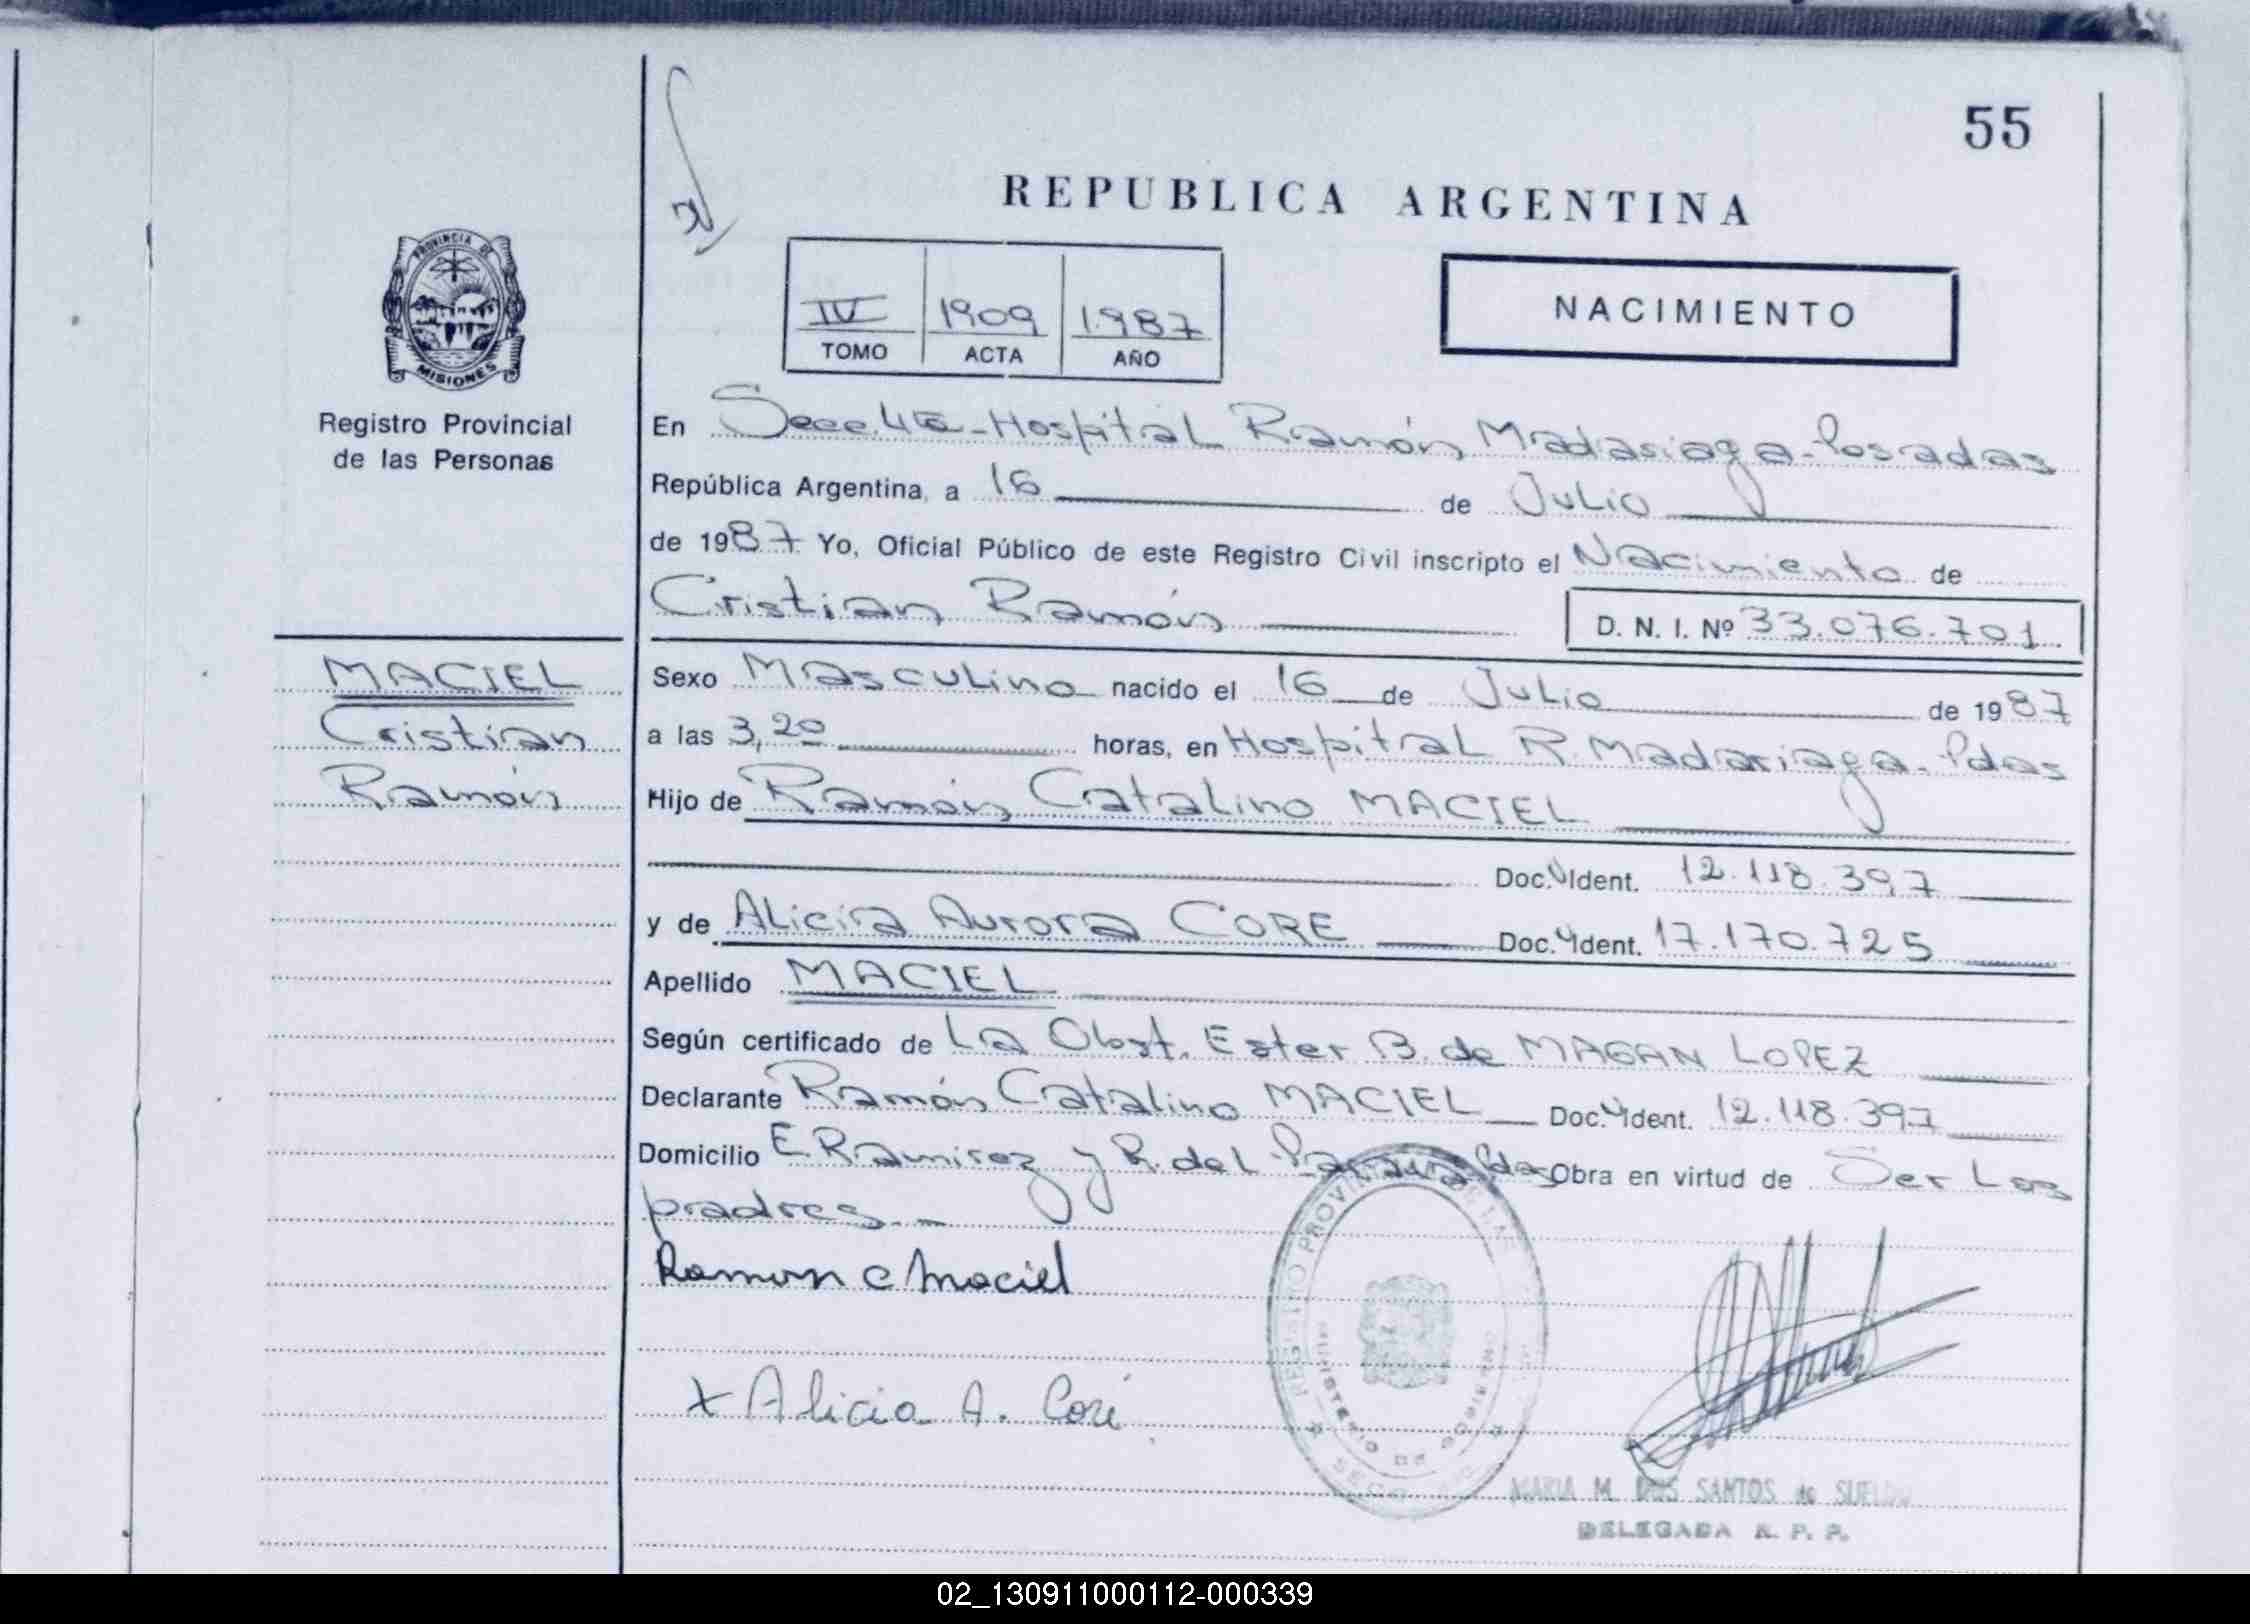 55
REPUBLICA ARGENTINA
IV 1909 1987
TOMO ACTA AÑO
NACIMIENTO
PROVINCIA DE
MISIONES
Registro Provincial
de las Personas
En Secc. 4ta - Hospital Ramón Madariaga - Posadas
República Argentina, a 16 de Julio
de 1987 Yo, Oficial Público de este Registro Civil inscripto el Nacimiento de
Cristian Ramón
D. N. I. Nº 33.076.701.
MACIEL
Cristian
Ramón
Sexo Masculino nacido el 16 de Julio de 1987
a las 3,20 horas, en Hospital R. Madariaga - Pdas
Hijo de Ramón Catalino MACIEL
Doc. Ident. 12.118.397
y de Alicia Aurora CORE Doc. Ident. 17.170.725
Apellido MACIEL
Según certificado de La Obst. Ester B. de MAGAN LOPEZ
Declarante Ramón Catalino MACIEL Doc. Ident. 12.118.397
Domicilio E. Ramirez y R. del Paraná Pdas Obra en virtud de Ser Los
padres. -
Ramon C Maciel
x Alicia A. Coré
REGISTRO PROVINCIAL
MINISTERIO DE GOBIERNO
MARIA M. DOS SANTOS de SUELDO
DELEGADA R. P. P.
02_130911000112-000339